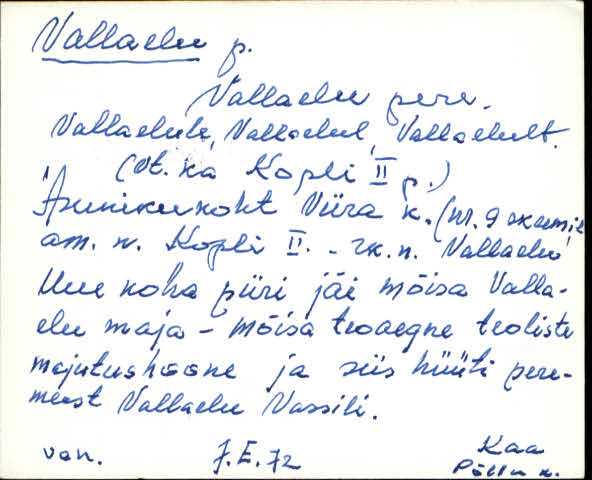 Vallaelu p.
Vallaelu pere.
Vallaelule, Vallaelul, Vallaelult.
(Vt. ka Kopli II p.)
Asunikukoht Viira k. (nr. 9 skeemil
am. n. Kopli II. - rk. n. Vallaelu
Uue koha piiri jäi mõisa Valla-
elu maja - mõisa teoaegne teoliste
majutushoone ja siis hüüti pere-
meest Vallaelu Vassili.
van. J.E.72 Kaa
Põllu k.